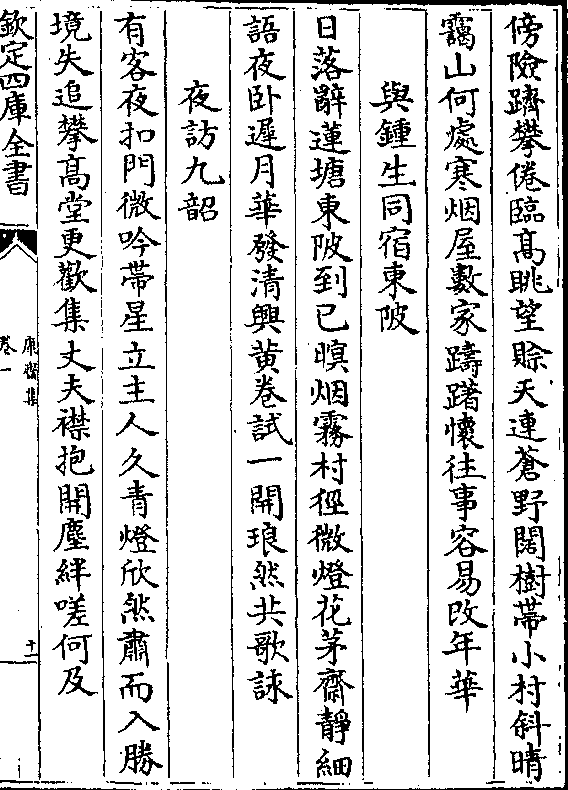 傍險躋攀倦臨高眺望賒天連蒼野闊樹帶小村斜晴
靄山何處寒烟屋數家躊躇懷往事容易改年華
與鍾生同宿東陂
日落辭蓮塘東陂到已暝烟霧村徑微燈花茅齋靜細
語夜卧遲月華發清興黄卷試一開琅然共歌詠
夜訪九韶
有客夜扣門微吟帶星立主人久青燈欣然肅而入勝
境失追攀高堂更歡集丈夫襟抱開塵絆嗟何及
欽定四庫全書
康齋集
卷一
十一